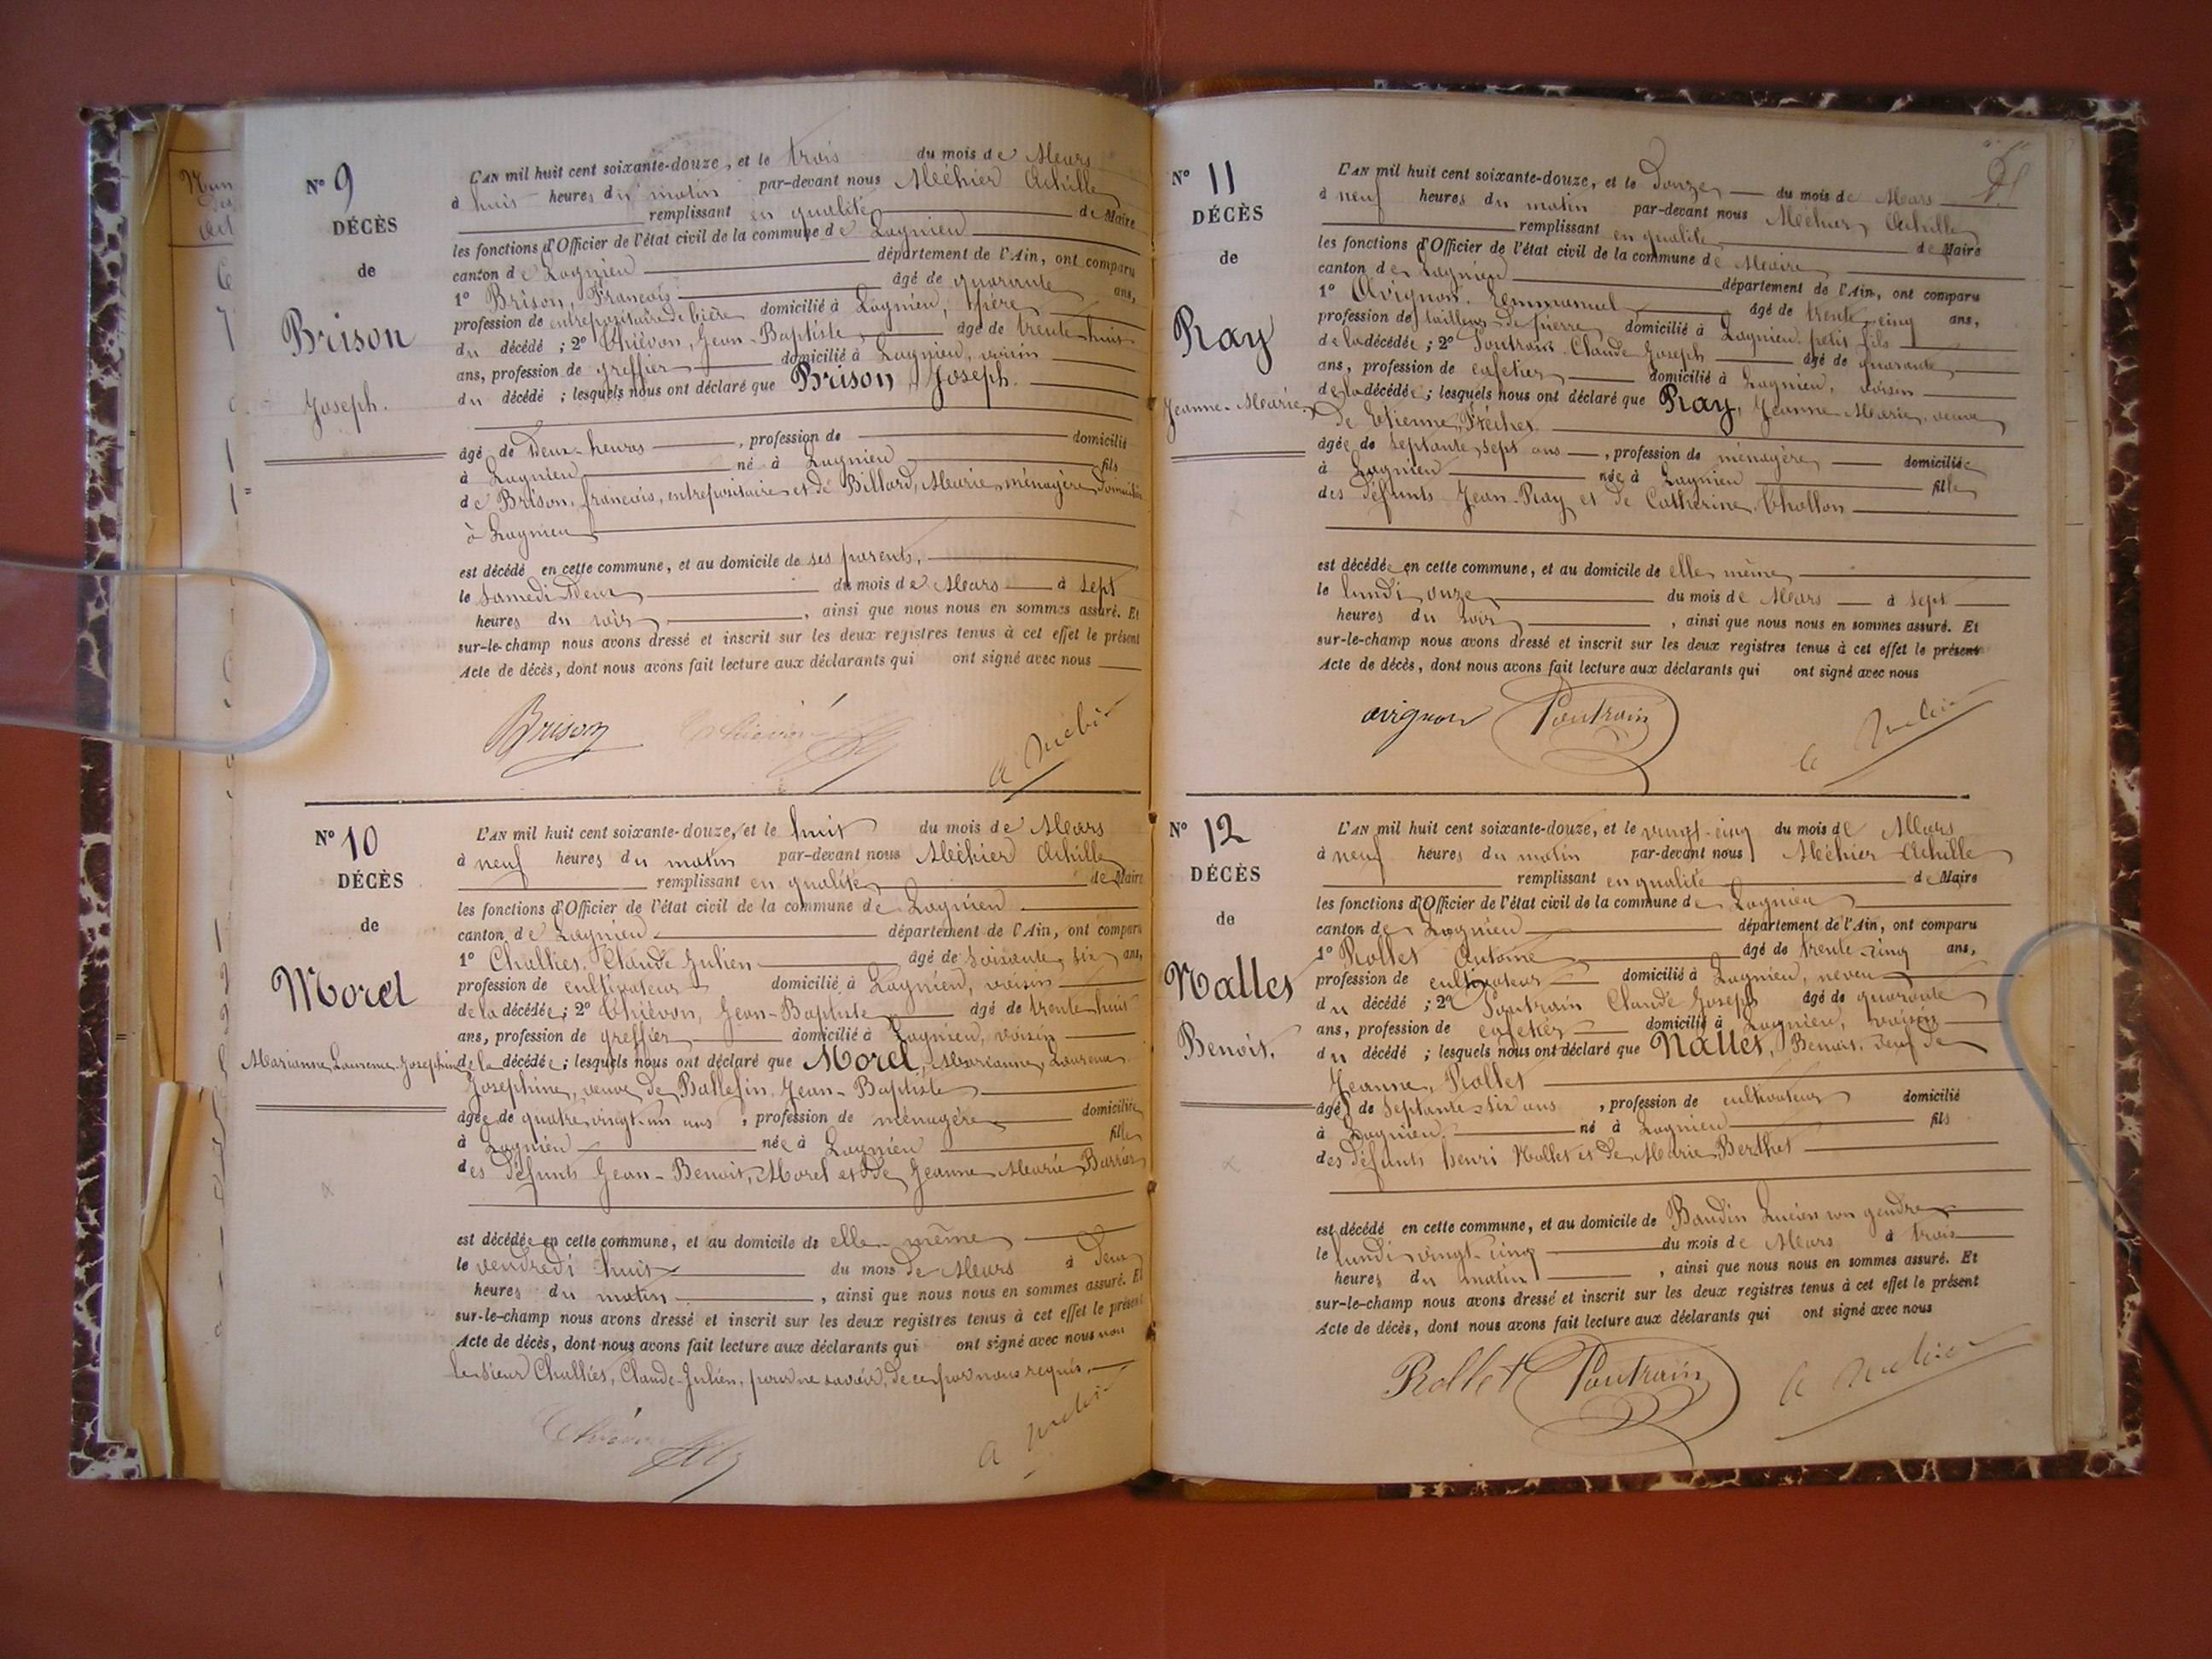 N° 9
DÉCÈS
de
Brison
Joseph.
L'AN mil huit cent soixante-douze, et le trois du mois de Mars
à huit heures du matin par-devant nous Méchier Achille
remplissant en qualité de Maire
les fonctions d'Officier de l'état civil de la commune de Lagnieu
canton de Lagnieu département de l'Ain, ont comparu
1° Brison, Francois âgé de quarante ans,
profession de entrepositaire de bière domicilié à Lagnieu, père
du décédé ; 2° Thiévon, Jean-Baptiste âgé de trente huit
ans, profession de greffier domicilié à Lagnieu, voisin
du décédé ; lesquels nous ont déclaré que Brison, Joseph.
âgé de Deux heures , profession de domicilié
à Lagnieu né à Lagnieu fils
de Brison, francois, entrepositaire et de Billard, Marie, ménagère domiciliés
à Lagnieu
est décédé en cette commune, et au domicile de ses parents,
le Samedi Deux du mois de Mars à sept
heures du soir , ainsi que nous nous en sommes assuré. Et
sur-le-champ nous avons dressé et inscrit sur les deux registres tenus à cet effet le présent
Acte de décès, dont nous avons fait lecture aux déclarants qui ont signé avec nous
Brison Thiévon A Méchier
N° 10
DÉCÈS
de
Morel
Marianne Laurence Josephine
L'AN mil huit cent soixante-douze, et le huit du mois de Mars
à neuf heures du matin par-devant nous Méchier Achille
remplissant en qualité de Maire
les fonctions d'Officier de l'état civil de la commune de Lagnieu
canton de Lagnieu département de l'Ain, ont comparu
1° Challies, Claude Julien âgé de Soixante six ans,
profession de cultivateur domicilié à Lagnieu, voisin
de la décédée ; 2° Thiévon, Jean-Baptiste âgé de trente huit
ans, profession de greffier domicilié à Lagnieu, voisin
de la décédée ; lesquels nous ont déclaré que Morel, Marianne, Laurence
Josephine, veuve de Ballefin Jean-Baptiste
âgée de quatre vingt un ans , profession de ménagère domiciliée
à Lagnieu née à Lagnieu fille
des défunts Jean-Benoit, Morel et de Jeanne Marie Barrier
est décédée en cette commune, et au domicile de elle même
le vendredi huit du mois de Mars à Deux
heures du matin , ainsi que nous nous en sommes assuré. Et
sur-le-champ nous avons dressé et inscrit sur les deux registres tenus à cet effet le présent
Acte de décès, dont nous avons fait lecture aux déclarants qui ont signé avec nous non
le sieur Challies, Claude-Julien, pour ne savoir, de ce par nous requis.
Thiévon A Méchier
N° 11
DÉCÈS
de
Ray
Jeanne-Marie
L'AN mil huit cent soixante-douze, et le Douze du mois de Mars
à neuf heures du matin par-devant nous Méchier, Achille
remplissant en qualité de Maire
les fonctions d'Officier de l'état civil de la commune de Maire
canton de Lagnieu département de l'Ain, ont comparu
1° Avignon, Emmanuel âgé de trente cinq ans,
profession de tailleur de pierre domicilié à Lagnieu petit fils
de la décédée ; 2° Poutrain Claude Joseph âgé de quarante
ans, profession de cafetier domicilié à Lagnieu, voisin
de la décédée ; lesquels nous ont déclaré que Ray, Jeanne Marie, veuve
de Etienne, Fréches.
âgée de septante sept ans , profession de ménagère domiciliée
à Lagnieu née à Lagnieu fille
des défunts Jean-Ray et de Catherine Thollon
est décédée en cette commune, et au domicile de elle même
le lundi onze du mois de Mars à sept
heures du soir , ainsi que nous nous en sommes assuré. Et
sur-le-champ nous avons dressé et inscrit sur les deux registres tenus à cet effet le présent
Acte de décès, dont nous avons fait lecture aux déclarants qui ont signé avec nous
avignon Poutrain A Méchier
N° 12
DÉCÈS
de
Nallet
Benoit.
L'AN mil huit cent soixante-douze, et le vingt-cinq du mois de Mars
à neuf heures du matin par-devant nous Méchier Achille
remplissant en qualité de Maire
les fonctions d'Officier de l'état civil de la commune de Lagnieu
canton de Lagnieu département de l'Ain, ont comparu
1° Rollet Antoine âgé de trente cinq ans,
profession de cultivateur domicilié à Lagnieu, neveu
du décédé ; 2° Poutrain Claude Joseph âgé de quarante
ans, profession de cafetier domicilié à Lagnieu, voisin
du décédé ; lesquels nous ont déclaré que Nallet, Benoit, veuf de
Jeanne, Rollet
âgé de septante six ans , profession de cultivateur domicilié
à Lagnieu né à Lagnieu fils
des défunts henri Nallet et de Marie Berthet
est décédé en cette commune, et au domicile de Baudin Lucien son gendre
le lundi vingt-cinq du mois de Mars à trois
heures du matin , ainsi que nous nous en sommes assuré. Et
sur-le-champ nous avons dressé et inscrit sur les deux registres tenus à cet effet le présent
Acte de décès, dont nous avons fait lecture aux déclarants qui ont signé avec nous
Rollet Poutrain A Méchier